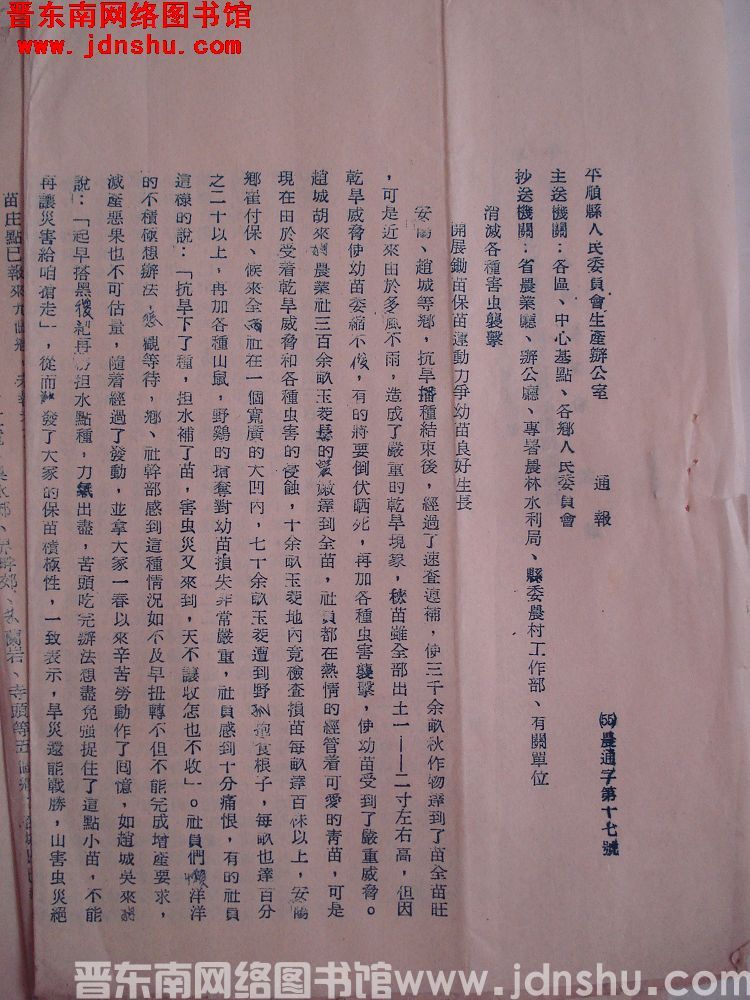 晋东南网络图书馆
www.jdnshu.com
平順縣人民委員會生產辦公室　通報
(55)農通字第十七號
主送機關：各區、中心基點、各鄉人民委員會
抄送機關：省農業廳、辦公廳、專署農林水利局、縣委農村工作部、有關單位
消滅各種害虫襲擊
開展鋤苗保苗運動力爭幼苗良好生長
安陽、趙城等鄉，抗旱播種結束後，經過了速查速補，使三千余畝秋作物達到了苗全苗旺
，可是近來由於多風不雨，造成了嚴重的乾旱現象，秧苗雖全部出土一——二寸左右高，但因
乾旱威脅使幼苗萎縮不俊，有的將要倒伏晒死，再加各種虫害襲擊，使幼苗受到了嚴重威脅。
趙城胡來農業社三百余畝玉茭的達到全苗，社員都在熱情的經管着可愛的青苗，可是
現在田於受着乾旱威脅和各種虫害的侵蝕，十余畝玉茭地內竟檢查損苗每畝達百株以上，安陽
鄉崔付保、候來全社在一個寬廣的大凹內，七十余畝玉茭遭到野食根子，每畝也達百分
之二十以上，再加各種山鼠，野鷄的搶奪對幼苗損失非常嚴重，社員感到十分痛恨，有的社員
這樣的說：「抗旱下了種，担水補了苗，害虫災又來到，天不讓收怎也不收」。社員們懶洋洋
的不積極想辦法，悲觀等待，鄉、社幹部感到這種情況如不及早扭轉不但不能完成增產要求，
減產惡果也不可估量，隨着經過了發動，並拿大家一春以來辛苦勞動作了回憶，如趙城吳來
說：「起早搭黑担水點種，力氣出盡，苦頭吃完辦法想盡免強捉住了這點小苗，不能
再讓災害給咱搶走」，從而發了大家的保苗積極性，一致表示，旱災還能戰勝，山害虫災絕
苗庄點已報來
寺頭等五個鄉
晋东南网络图书馆www.jdnshu.com